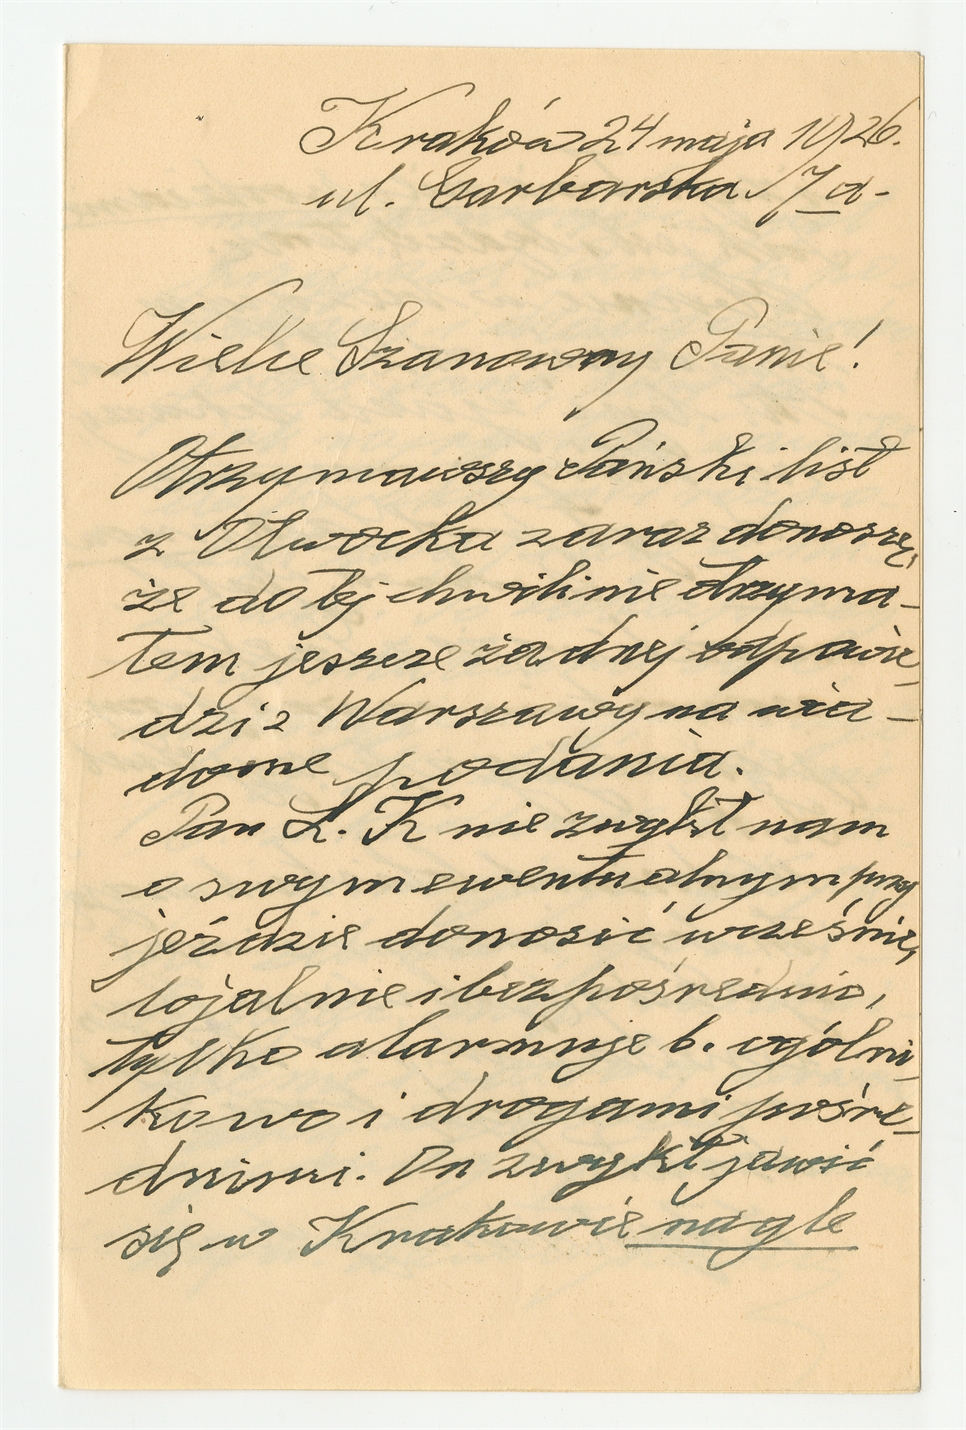 Kraków 24 maja 1926.
ul. Garbarska 7 a-
Wielce Szanowny Panie!
Otrzymawszy Pański list
z Otwocka zaraz donoszę,
że do tej chwili nie otrzyma-
łem jeszcze żadnej odpowie-
dzi z Warszawy na wia-
dome podania.
Pan L. K nie zwykł nam
o swym ewentualnym przy
jeździe donosić wcześnie,
lojalnie i bezpośrednio,
tylko alarmuje b. ogólni-
kowo i drogami pośre-
dnimi. On zwykł jawić
się w Krakowie nagle